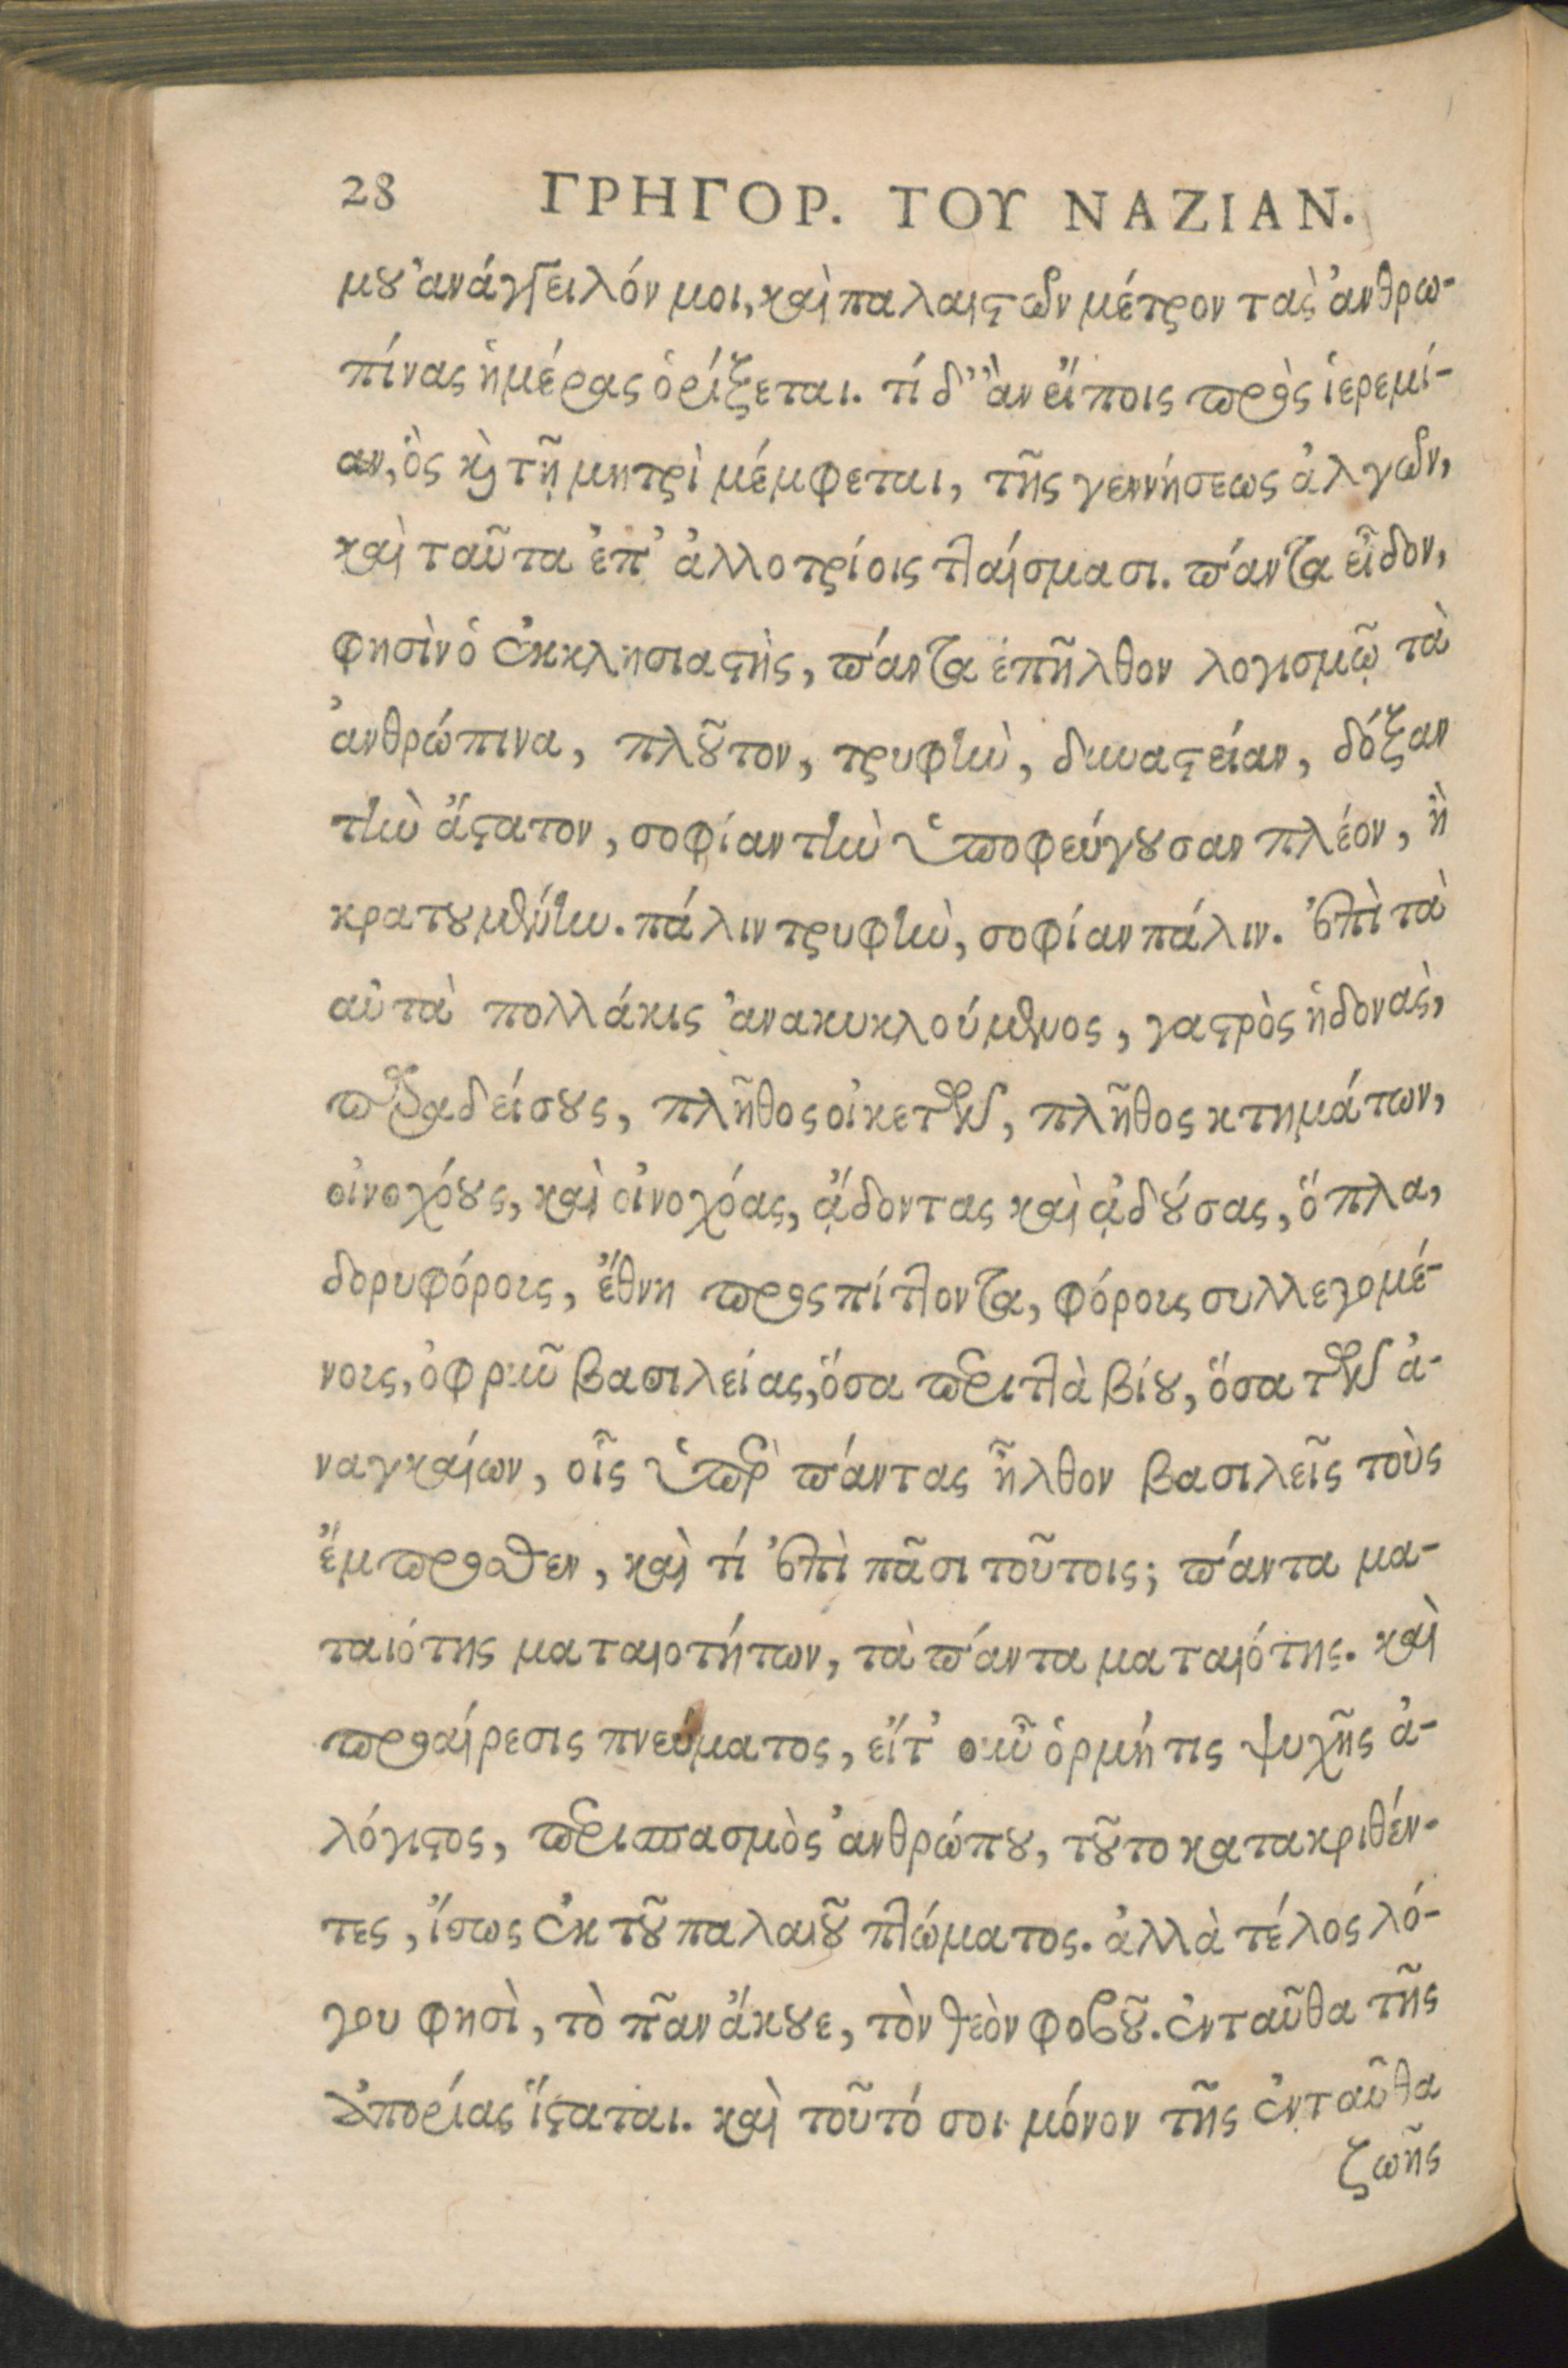 28 ΓΡΗΓΟΡ. ΤΟΥ ΝΑΖΙΑΝ.
μου ἀνάγγειλόν μοι, καὶ παλαιστῶν μέτρον τὰς ἀνθρω-
πίνας ἡμέρας ὁρίζεται. τί δ' ἂν εἴποις πρὸς ἱερεμί-
αν, ὃς καὶ τῇ μητρὶ μέμφεται, τῆς γεννήσεως ἀλγῶν,
καὶ ταῦτα ἐπ' ἀλλοτρίοις πταίσμασι. πάντα εἶδον,
φησὶν ὁ ἐκκλησιαστὴς, πάντα ἐπῆλθον λογισμῷ τὰ
ἀνθρώπινα, πλοῦτον, τρυφὴν, δυναστείαν, δόξαν
τὴν ἄστατον, σοφίαν τὴν ὑποφεύγουσαν πλέον, ἢ
κρατουμένην. πάλιν τρυφὴν, σοφίαν πάλιν. ἐπὶ τὰ
αὐτὰ πολλάκις ἀνακυκλούμενος, γαστρὸς ἡδονὰς,
παραδείσους, πλῆθος οἰκετῶν, πλῆθος κτημάτων,
οἰνοχόους, καὶ οἰνοχόας, ᾄδοντας καὶ ᾀδούσας, ὅπλα,
δορυφόρους, ἔθνη προσπίπτοντα, φόρους συλλεγομέ-
νους, ὀφρυῦ βασιλείας, ὅσα περιττὰ βίου, ὅσα τῶν ἀ-
ναγκαίων, οἷς ὑπὲρ πάντας ἦλθον βασιλεῖς τοὺς
ἔμπροσθεν, καὶ τί ἐπὶ πᾶσι τοῦτοις; πάντα μα-
ταιότης ματαιοτήτων, τὰ πάντα ματαιότης. καὶ
προαίρεσις πνεύματος, εἴτ' οὖν ὁρμή τις ψυχῆς ἀ-
λόγιστος, περισπασμὸς ἀνθρώπου, τοῦτο κατακριθέν-
τες, ἴσως ἐκ τοῦ παλαιοῦ πτώματος. ἀλλὰ τέλος λό-
γου φησὶ, τὸ πᾶν ἄκουε, τὸν θεὸν φοβοῦ. ἐνταῦθα τῆς
ἀπορίας ἵσταται. καὶ τοῦτό σοι μόνον τῆς ἐνταῦθα
ζωῆς